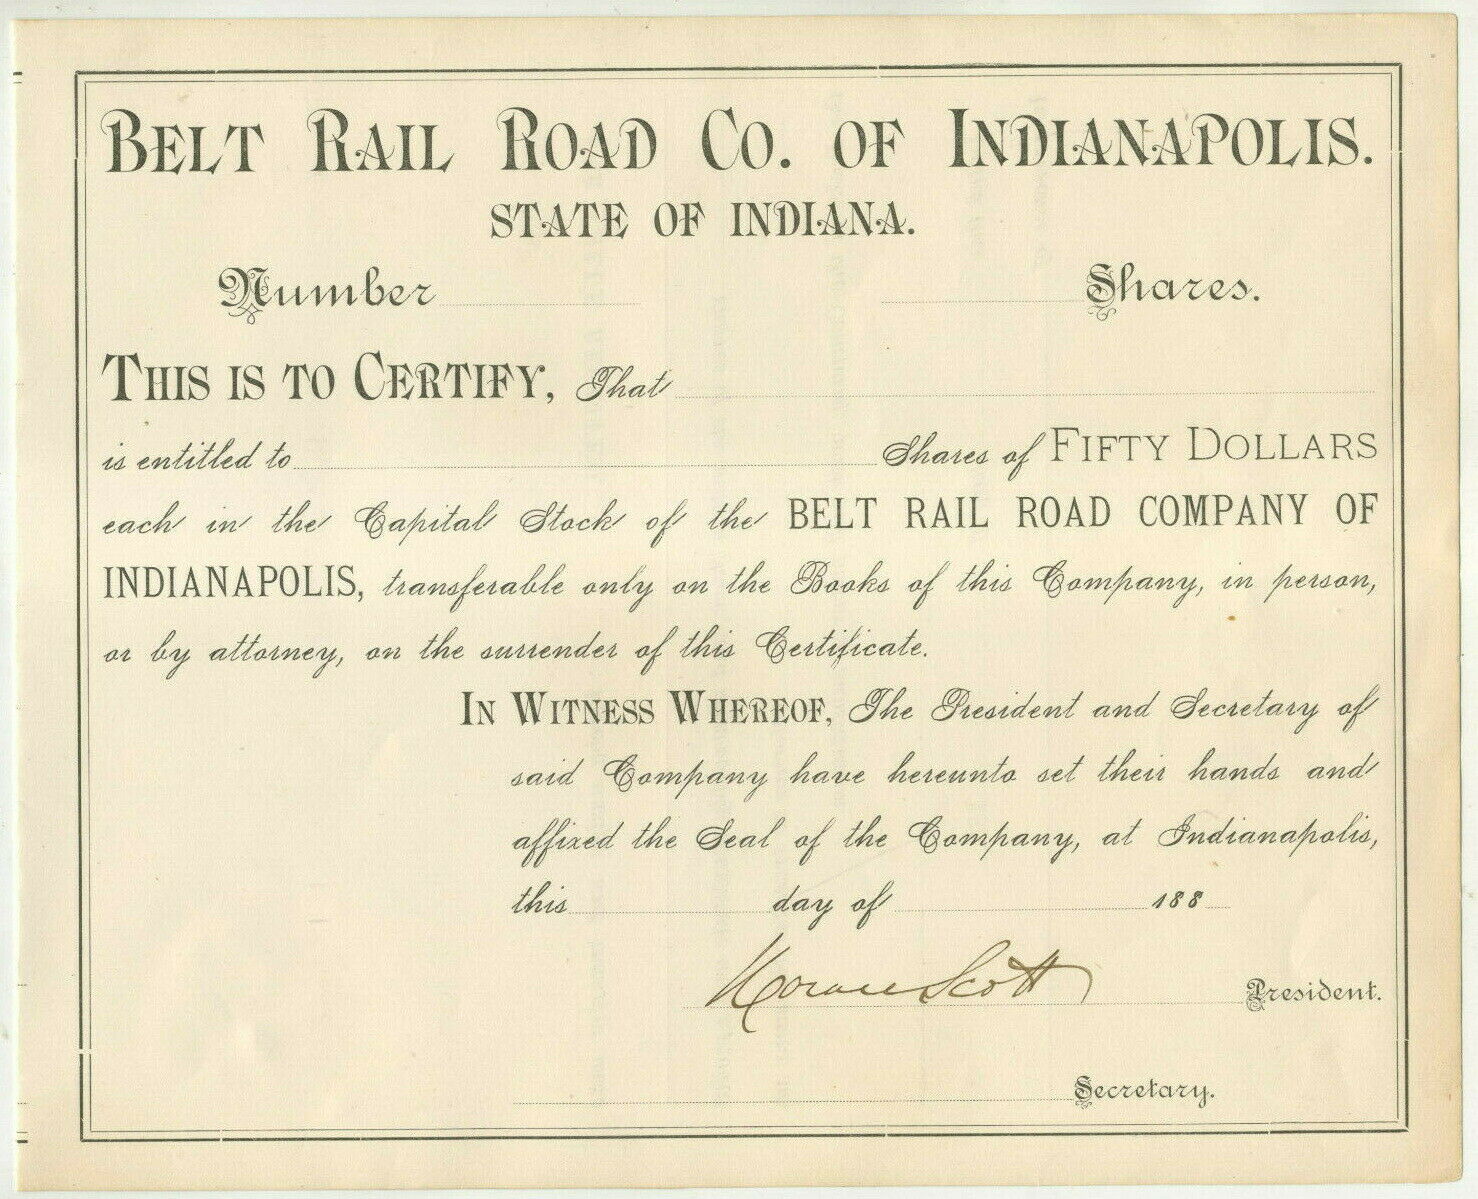 BELT RAIL ROAD CO. OF INDIANAPOLIS.
STATE OF INDIANA.
Number Shares.
THIS IS TO CERTIFY, That
is entitled to Shares of FIFTY DOLLARS
each in the Capital Stock of the BELT RAIL ROAD COMPANY OF
INDIANAPOLIS, transferable only on the Books of this Company, in person,
or by attorney, on the surrender of this Certificate.
IN WITNESS WHEREOF, The President and Secretary of
said Company have hereunto set their hands and
affixed the Seal of the Company, at Indianapolis,
this day of 188
Scott President.
Secretary.